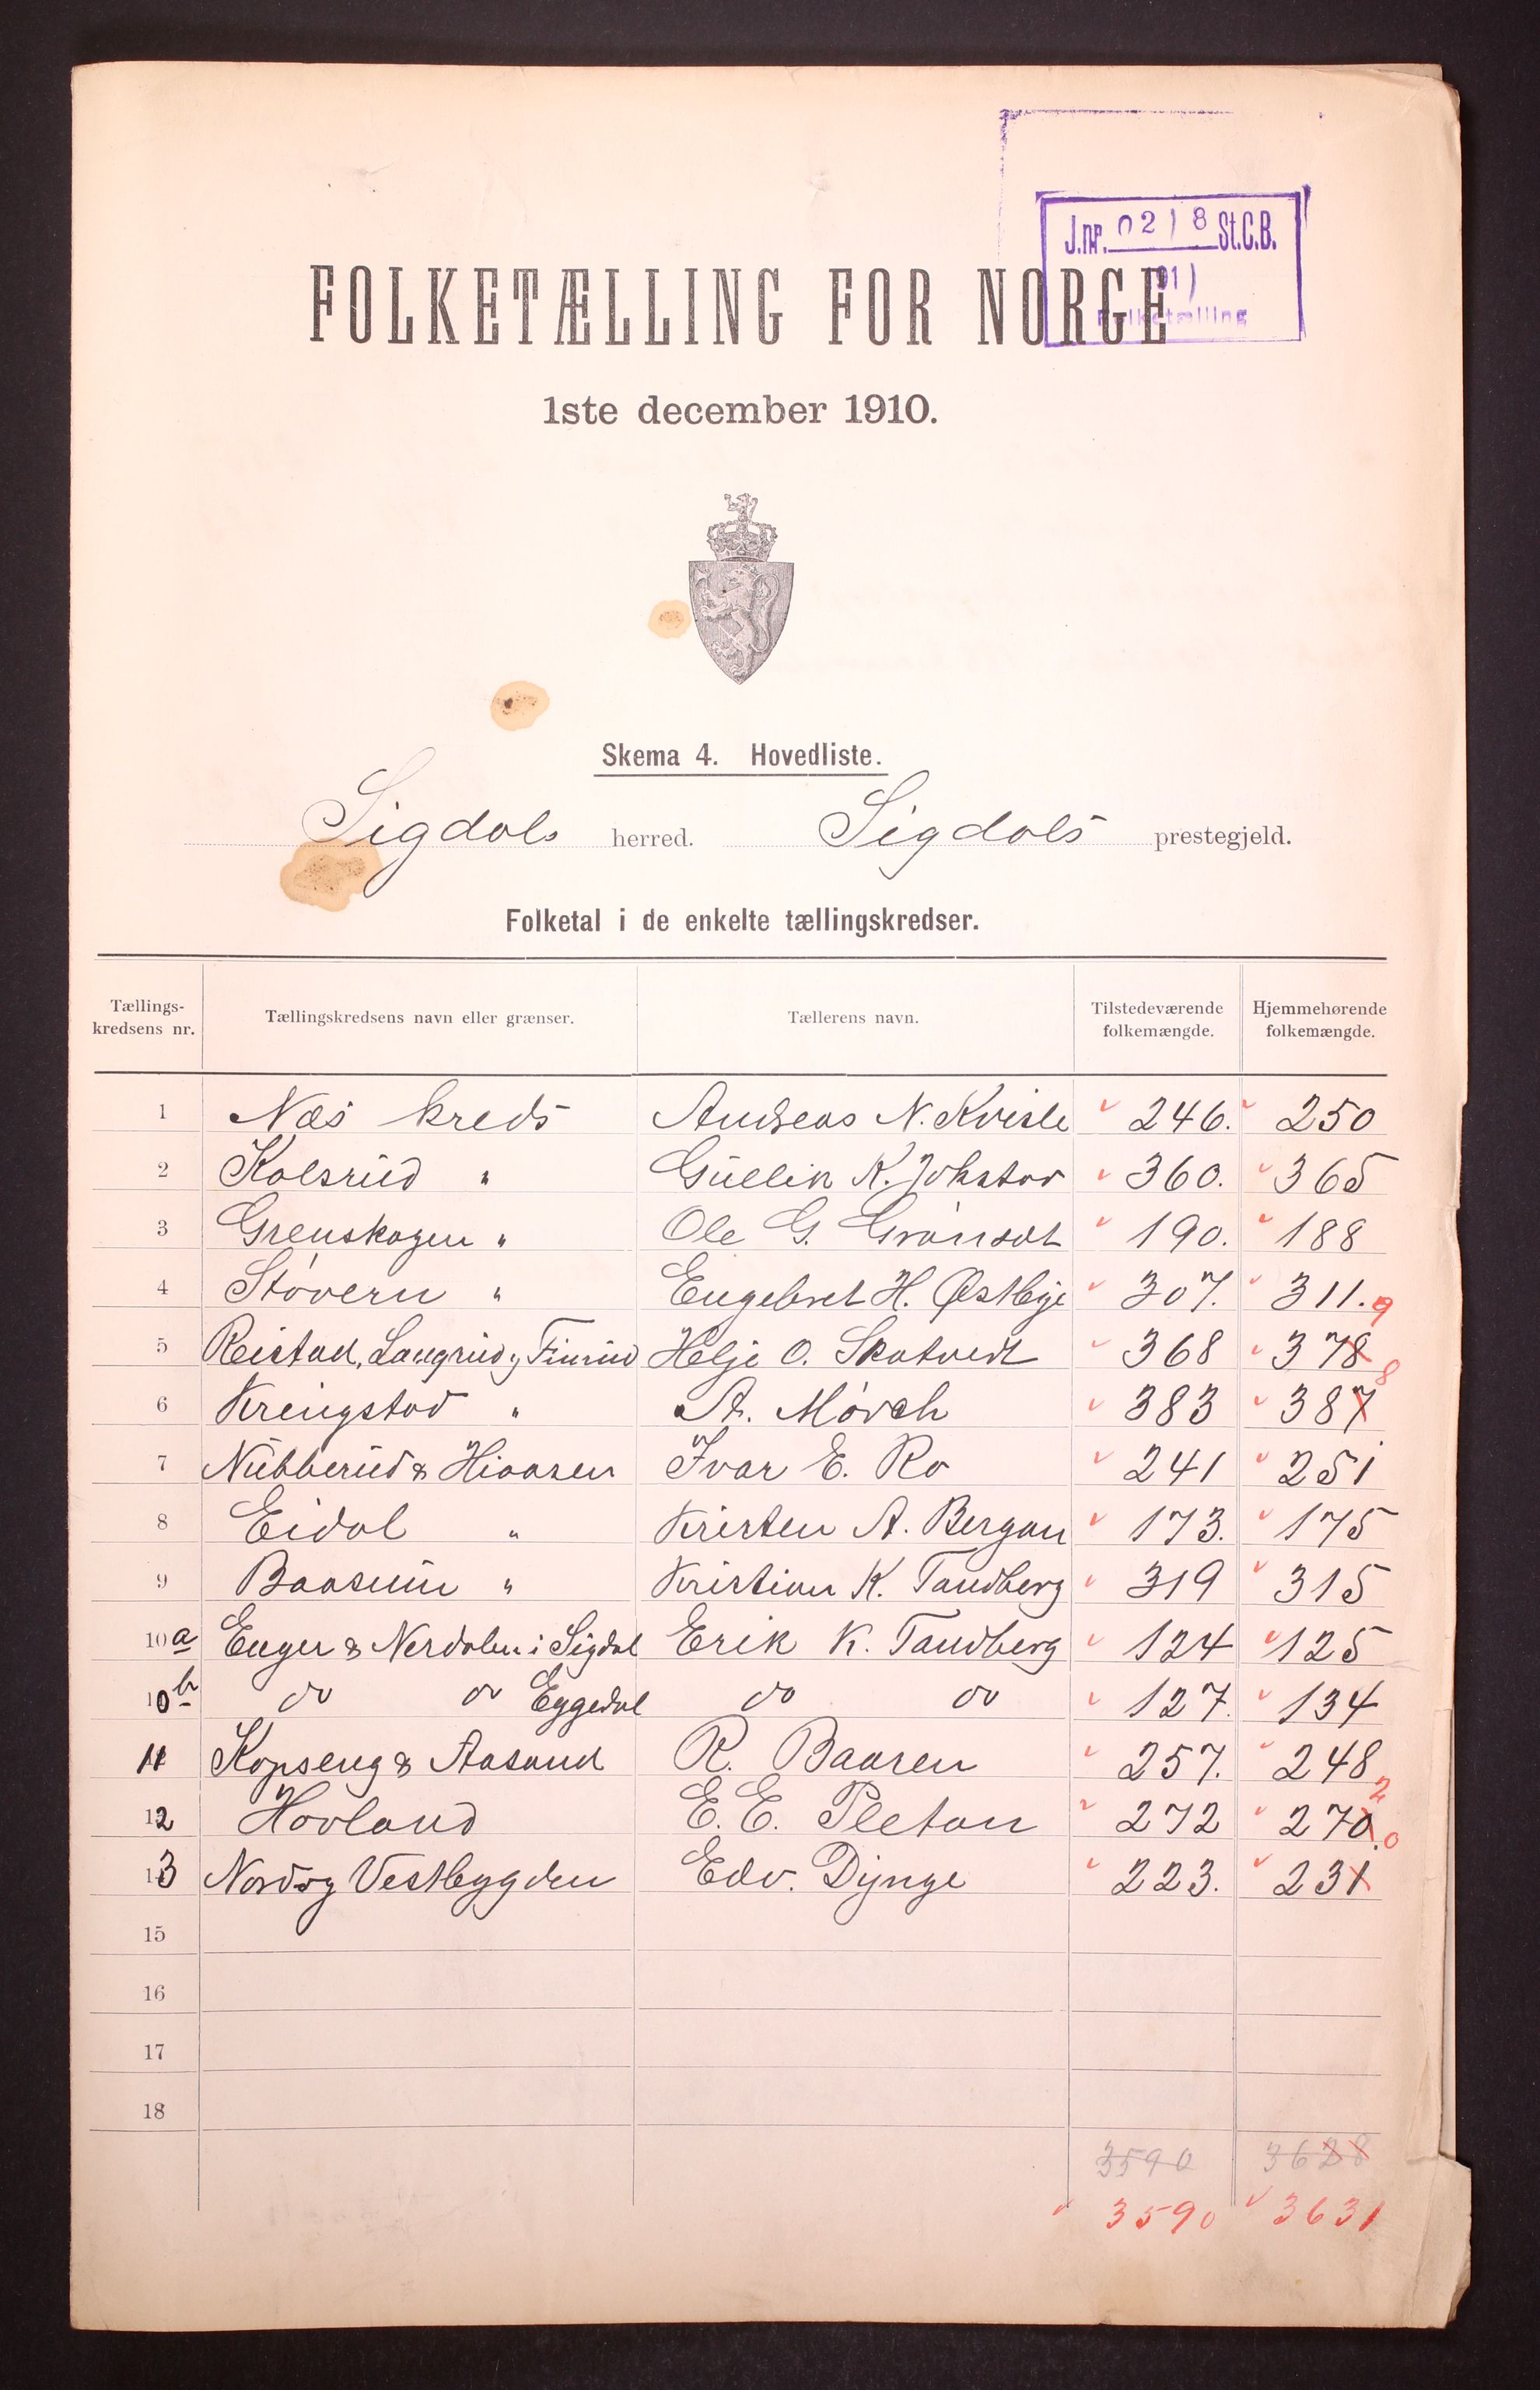 J.nr. 0218 St.C.B.
Folketælling
FOLKETÆLLING FOR NORGE
1ste december 1910.
Skema 4. Hovedliste.
Sigdals herred. Sigdals prestegjeld.
Folketal i de enkelte tællingskredser.
Tællings-kredsens nr. Tællingskredsens navn eller grænser. Tællerens navn. Tilstedeværende folkemængde. Hjemmehørende folkemængde.
1 Næs kreds Andreas N. Kvisle 246. 250
2 Kolsrud " Gullik K. 360. 365
3 Grenskogen " Ole G. 190. 188
4 Støvern " Engebret H. Østbye 307. 311.
5 Reistad, Langrud og Finrud Helje O. Skatvedt 368 378 9
6 Kringstad " A. Mørch 383 387 8
7 Nubberud & Hiaasen Ivar E. Ro 241 251
8 Eidal " Kristen A. Bergan 173. 175
9 Baasum " Kristian K. Tandberg 319 315
10a Enger & Nerdalen i Sigdal Erik K. Tandberg 124 125
10b do do Eggedal do do 127. 134
11 Kopseng & Aasand R. Baasen 257. 248
12 Hovland E. E. Pletan 272 270 2
13 Nord og Vestbygden Edv. Dynge 223. 231 0
15
16
17
18
3590 3628
3590 3631